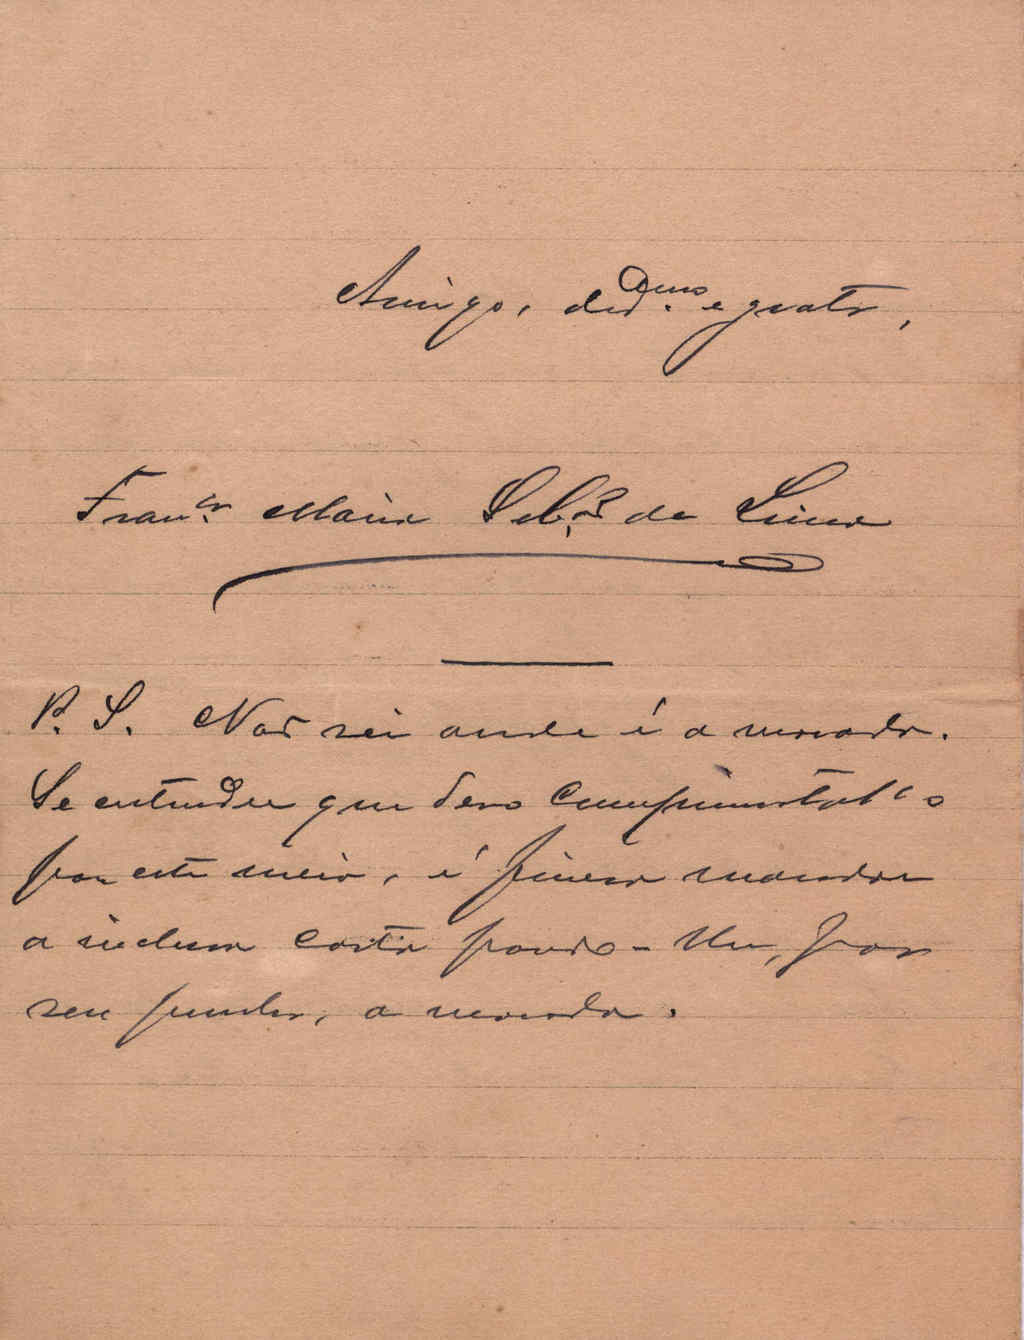 Amigo, ded.mo e grato,
Fran.co Maria de Lima
P. S. Não sei onde é a morada.
Se entender que devo cumprimental-o
por este meio, é fineza mandar
a inclusa carta pondo-lhe, por
seu punho, a morada.